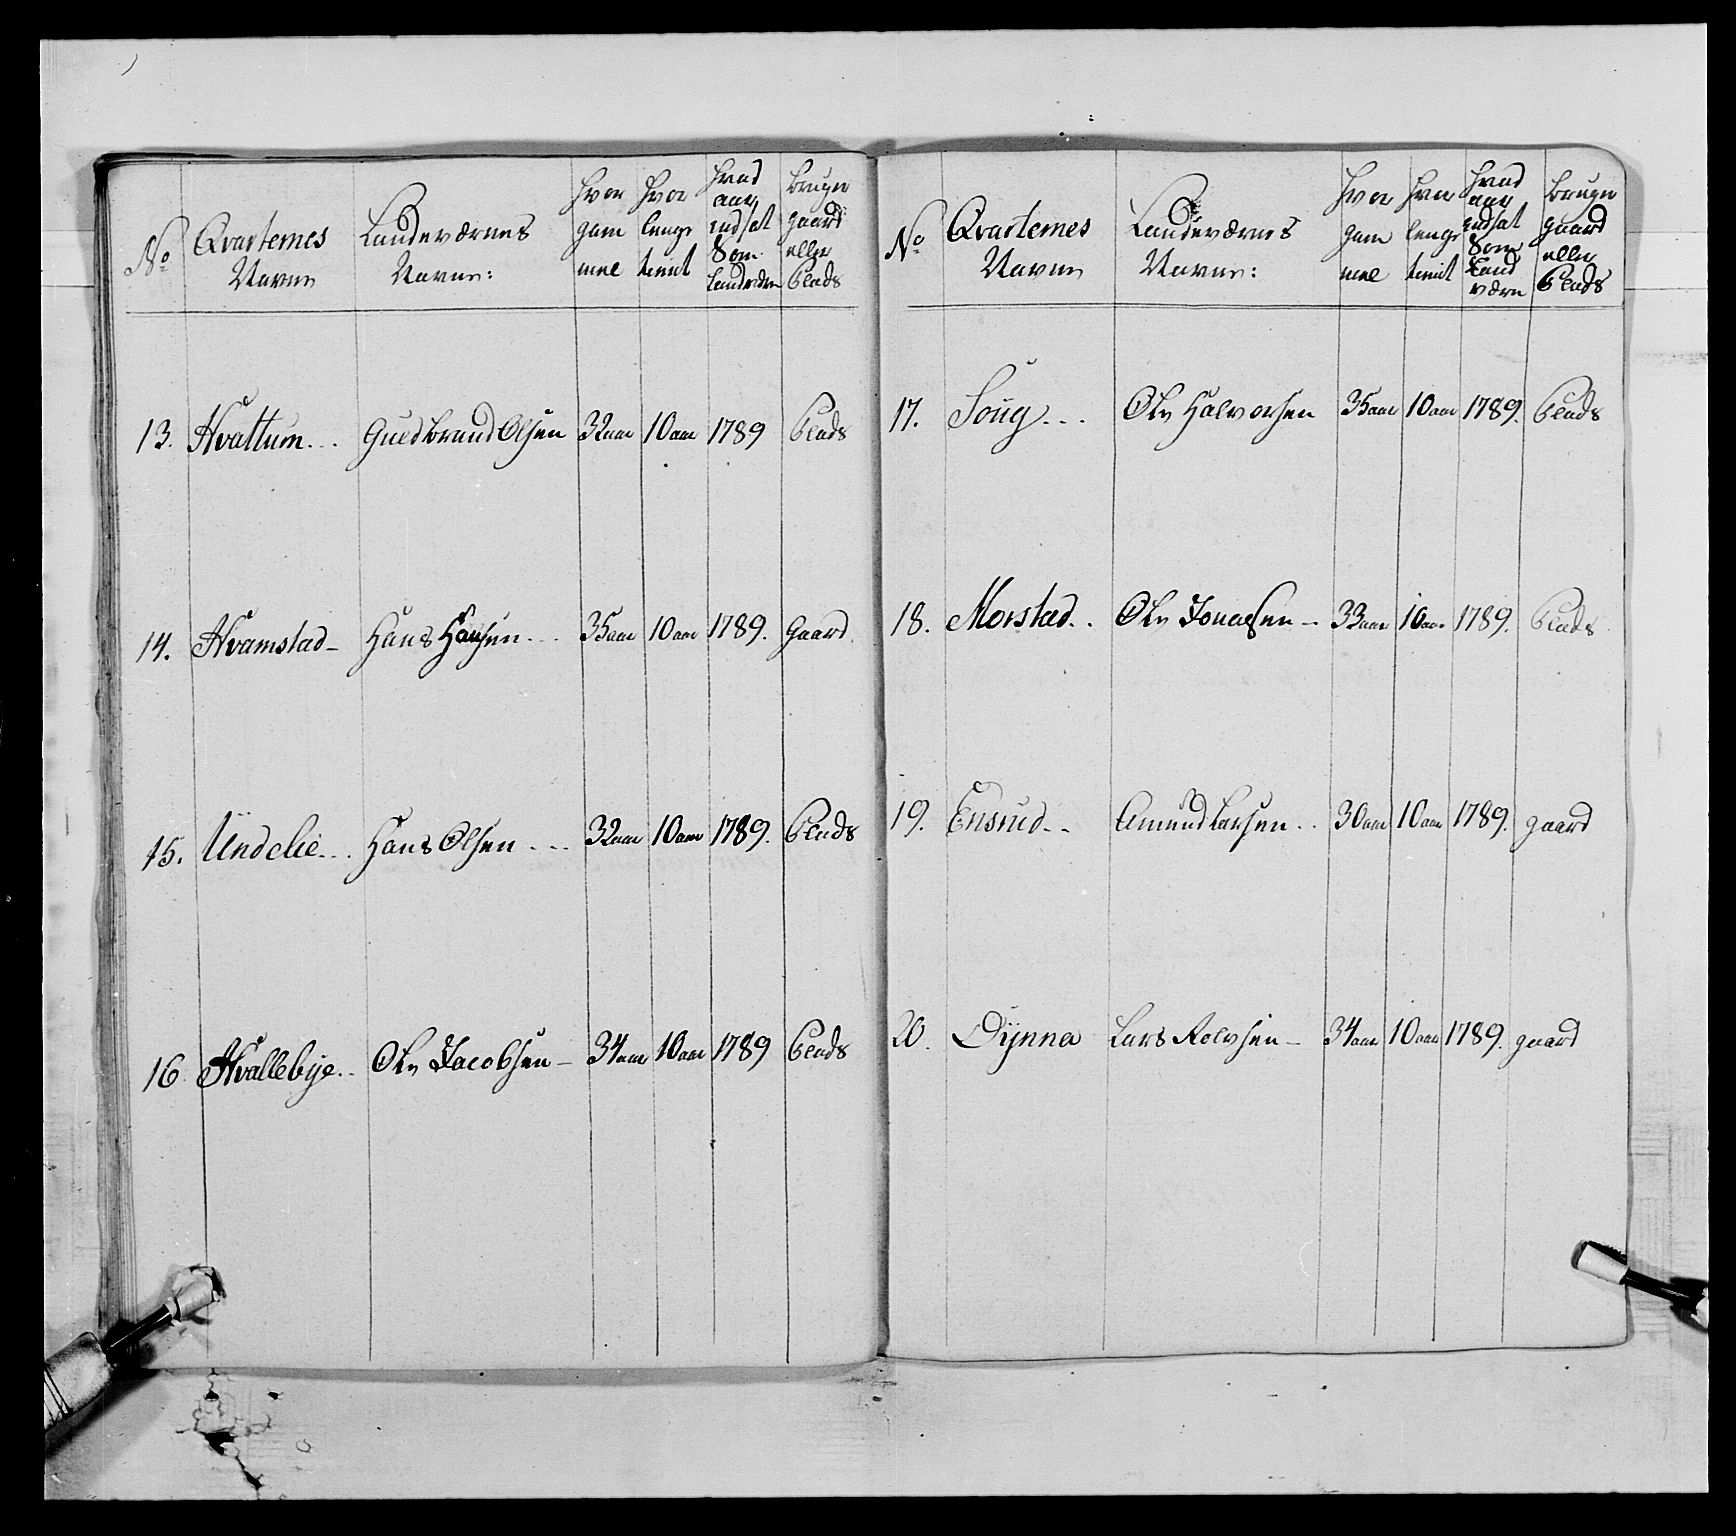 No Qvarternes Navne Landeværnes Navne: Hvor gam mel Hvor lenge tient Hvad aar indsat Som Landværn Bruger gaard eller Plads
13. Hvattum... Guldbrand Olsen 32 aar 10 aar 1789 Plads
14. Hvamstad- Hans Hansen... 35 aar 10 aar 1789. Gaard
15. Undelie... Hans Olsen... 32 aar 10 aar 1789. Plads
16. Hvallebye.. Ole Jacobsen- 34 aar 10 aar 1789 Plads
No Qvarternes Navne Landeværnes Navne: Hvor gam mel Hvor lenge tient Hvad aar indsat Som Land værn Bruger gaard eller Plads
17. Soug... Ole Halvorsen 35 aar 10 aar 1789. Plads
18. Morstad.. Ole Jonassen- 33 aar 10 aar 1789. Plads
19. Ensrud.. Amund Larsen.. 30 aar 10 aar 1789. gaard
20. Dynna Lars Rolvsen- 34 aar 10 aar 1789. gaard